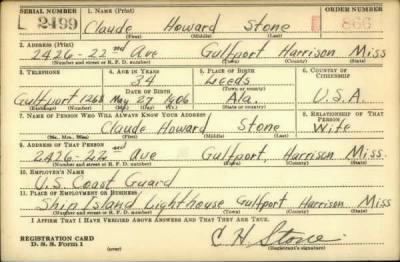 SERIAL NUMBER 1. NAME (Print) ORDER NUMBER
2499 Claude Howard Stone 866
(First) (Middle) (Last)
2. ADDRESS (Print)
2426-22nd Ave Gulfport Harrison Miss
(Number and street or R. F. D. number) (Town) (County) (State)
3. TELEPHONE 4. AGE IN YEARS 5. PLACE OF BIRTH 6. COUNTRY OF CITIZENSHIP
34 Leeds
DATE OF BIRTH (Town or county)
Gulfport 1268 May 27 1906 Ala. U.S.A.
(Exchange) (Number) (Mo.) (Day) (Yr.) (State or country)
7. NAME OF PERSON WHO WILL ALWAYS KNOW YOUR ADDRESS 8. RELATIONSHIP OF THAT PERSON
Claude Howard Stone Wife
(Mr., Mrs., Miss) (First) (Middle) (Last)
9. ADDRESS OF THAT PERSON
2426-22nd Ave Gulfport, Harrison Miss.
(Number and street or R. F. D. number) (Town) (County) (State)
10. EMPLOYER'S NAME
U.S. Coast Guard
11. PLACE OF EMPLOYMENT OR BUSINESS
Ship Island Lighthouse Gulfport Harrison Miss
(Number and street or R. F. D. number) (Town) (County) (State)
I AFFIRM THAT I HAVE VERIFIED ABOVE ANSWERS AND THAT THEY ARE TRUE.
REGISTRATION CARD C. H. Stone
D. S. S. Form 1 (over) (Registrant's signature)